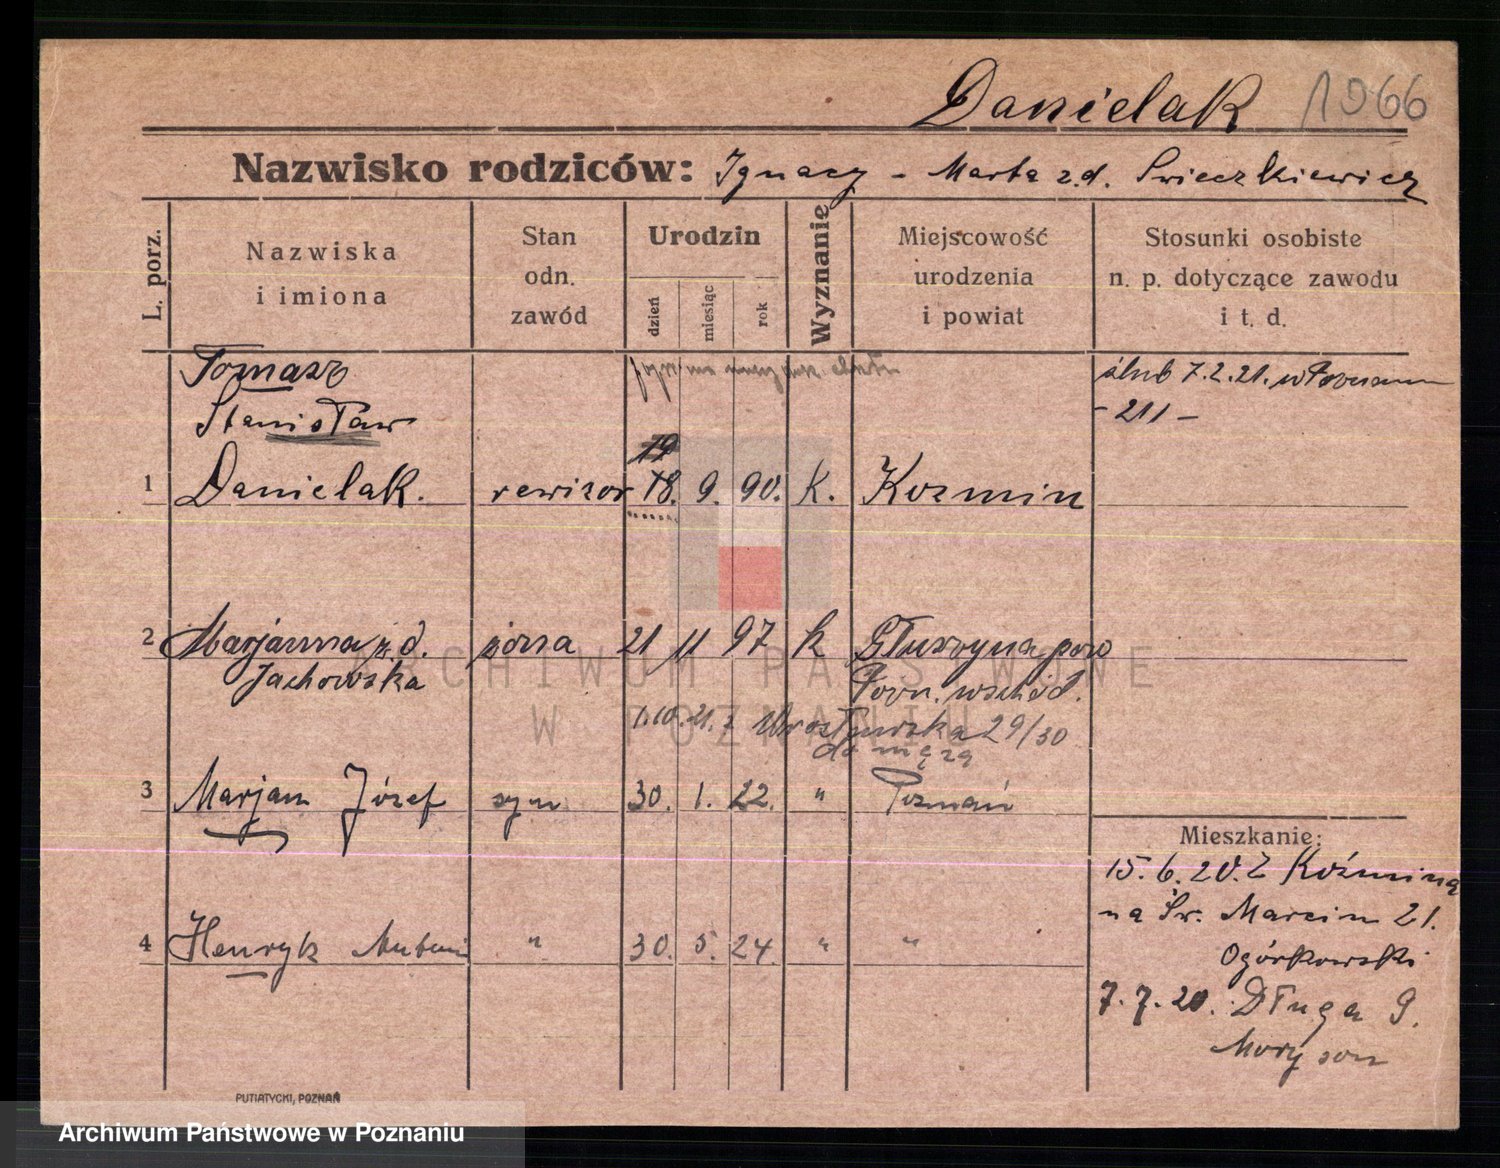 Danielak 1966
Nazwisko rodziców: Ignacy - Marta z.d. Swieczkiewicz
L. porz.
Nazwiska
i imiona
Stan
odn.
zawód
Urodzin
dzień
miesiąc
rok
Wyznanie
Miejscowość
urodzenia
i powiat
Stosunki osobiste
n. p. dotyczące zawodu
i t. d.
Tomasz
Stanisław
ślub 7.2.21. w Poznaniu
- 211 -
19
1 Danielak. rewizor 18. 9. 90. k. Kozmin
2 Marjanna z. d. żona 21 11 97 k Głuszyna pow
Jachowska Pozn. wschód.
1.10.21. z Wrocławska 29/30
do męża
3 Marjan Józef syn 30. 1. 22. " Poznań
4 Henryk Antoni " 30. 5. 24. " "
Mieszkanie:
15. 6. 20. Z Koźmina
na Św. Marcin 21.
Ogórkowski
7. 7. 20. Długa 9.
Moryson
PUTIATYCKI, POZNAŃ
ARCHIWUM PAŃSTWOWE
W POZNANIU
Archiwum Państwowe w Poznaniu